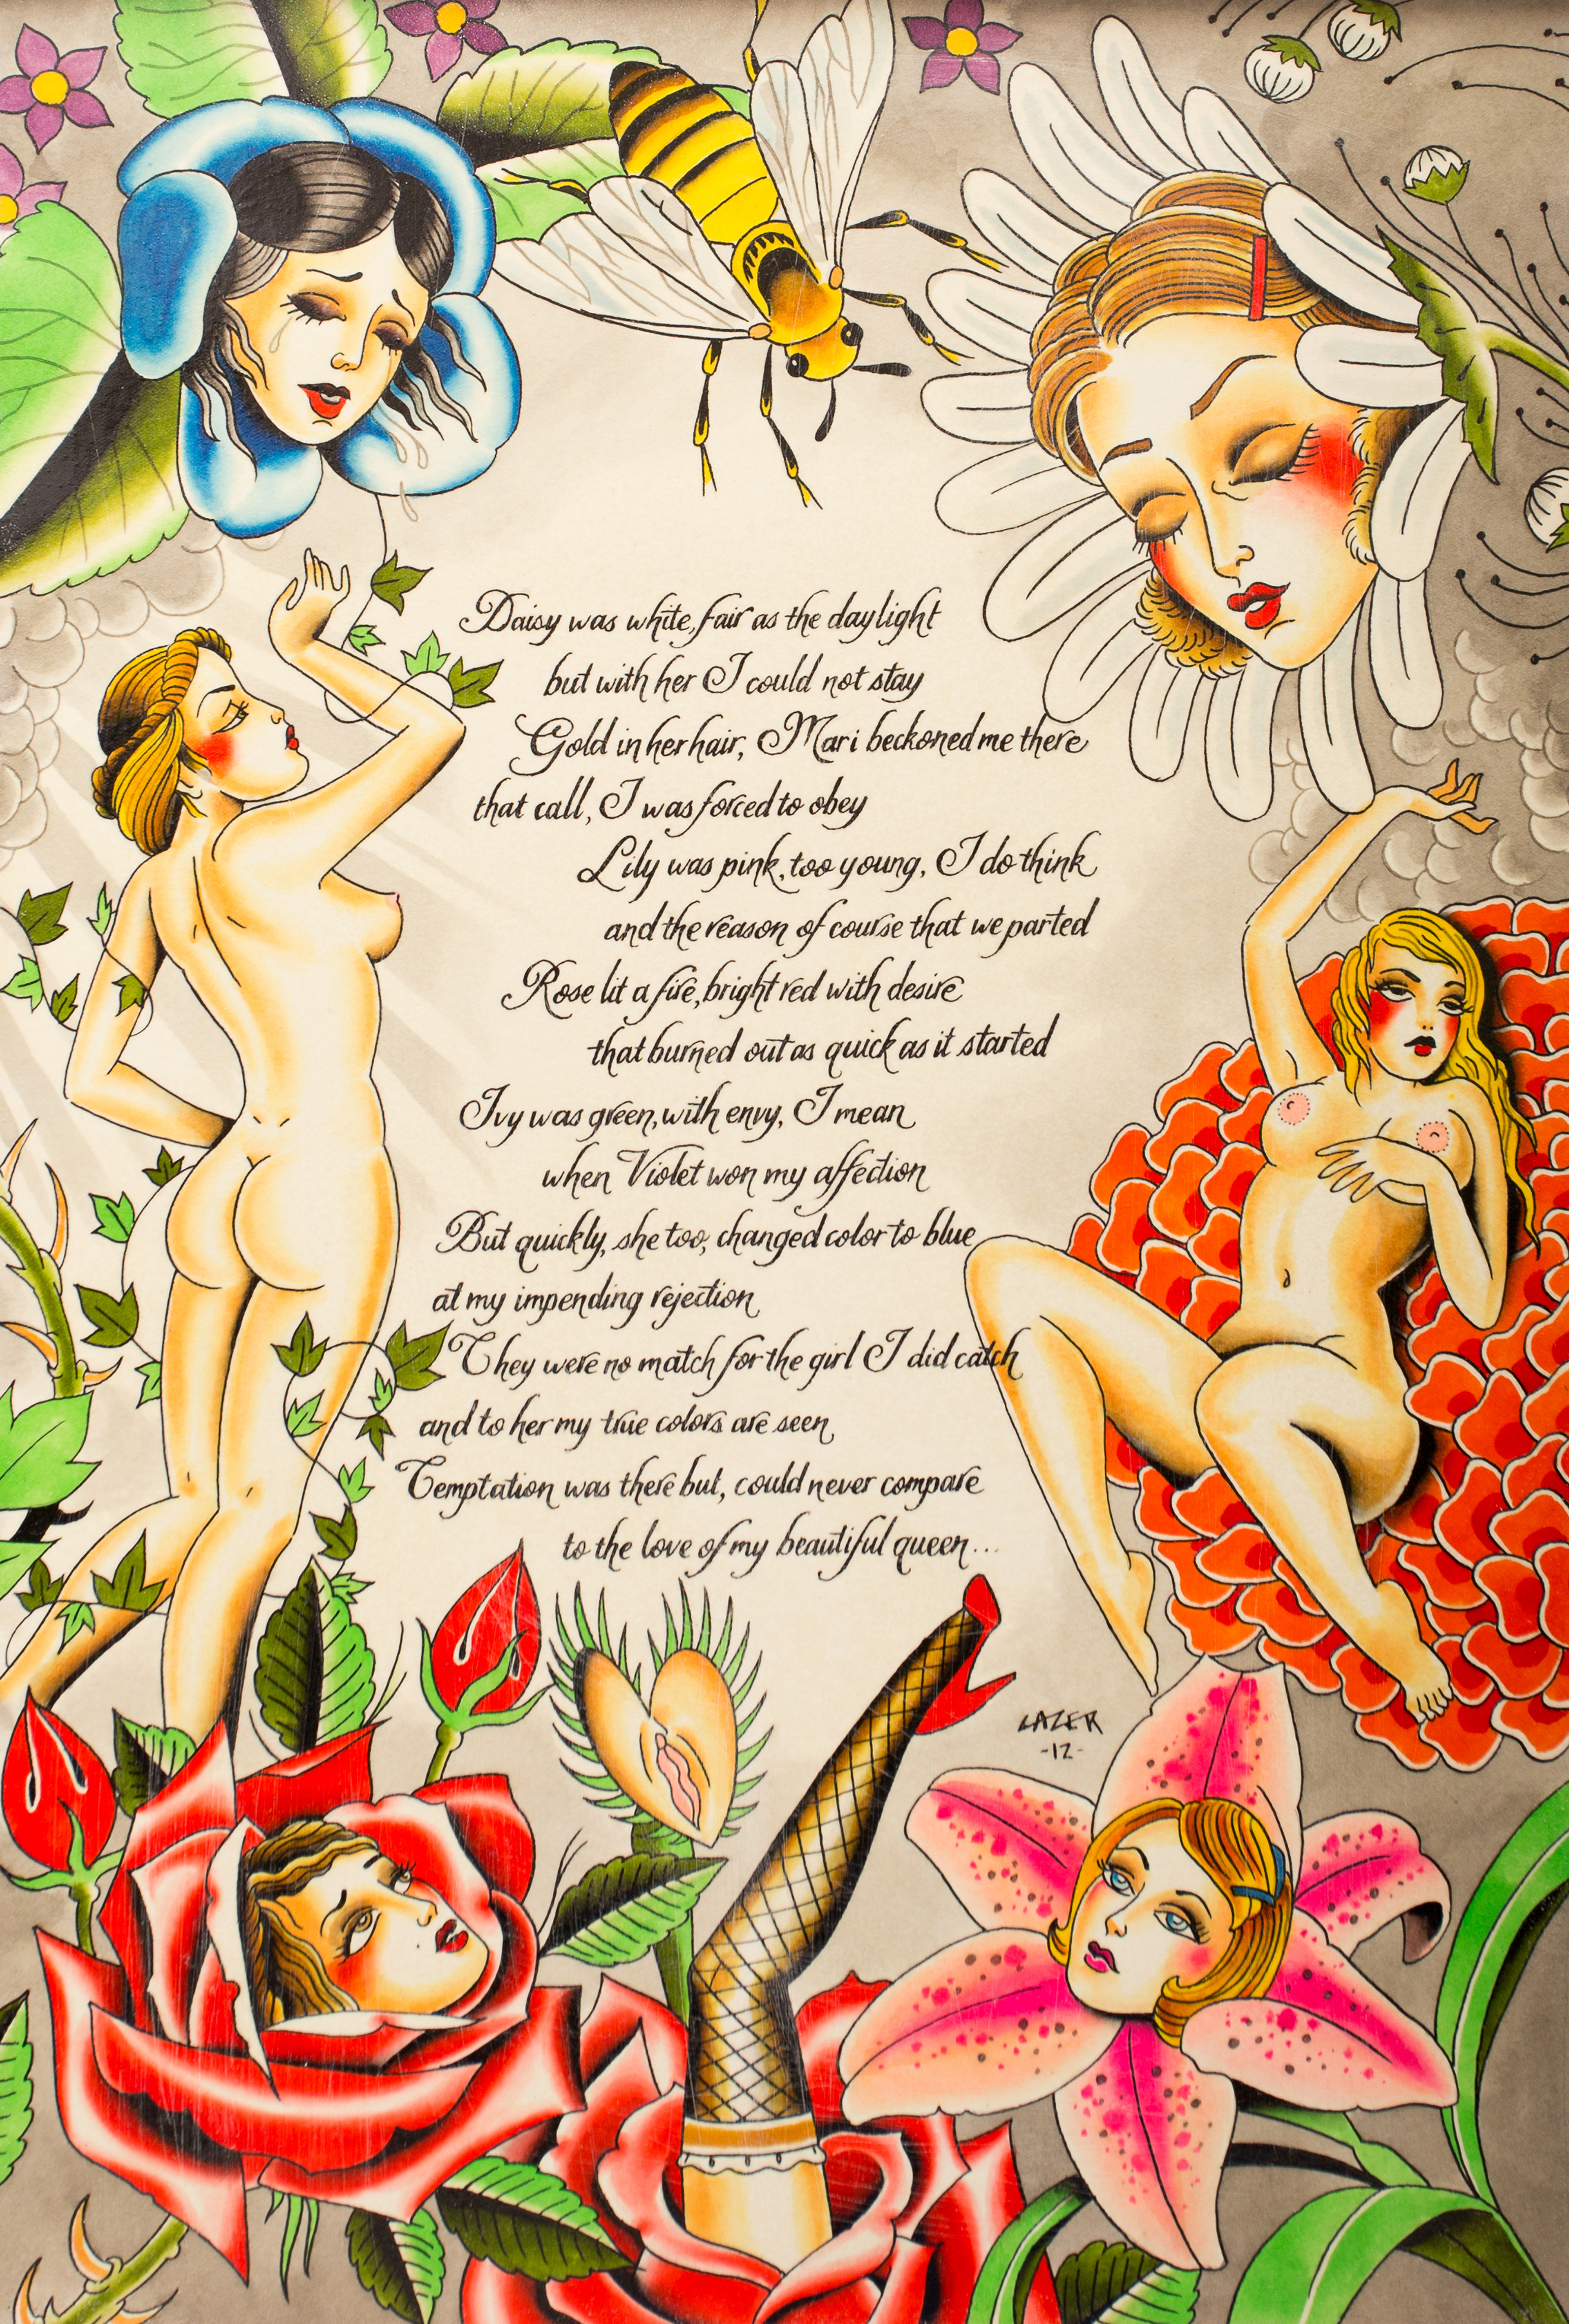 Daisy was white, fair as the daylight
but with her I could not stay
Gold in her hair, Mari beckoned me there
that call, I was forced to obey
Lily was pink, too young, I do think
and the reason of course that we parted
Rose lit a fire, bright red with desire
that burned out as quick as it started
Ivy was green, with envy, I mean
when Violet won my affection
But quickly, she too, changed color to blue
at my impending rejection
They were no match for the girl I did catch
and to her my true colors are seen
Temptation was there but, could never compare
to the love of my beautiful queen...
LAZER
-12-